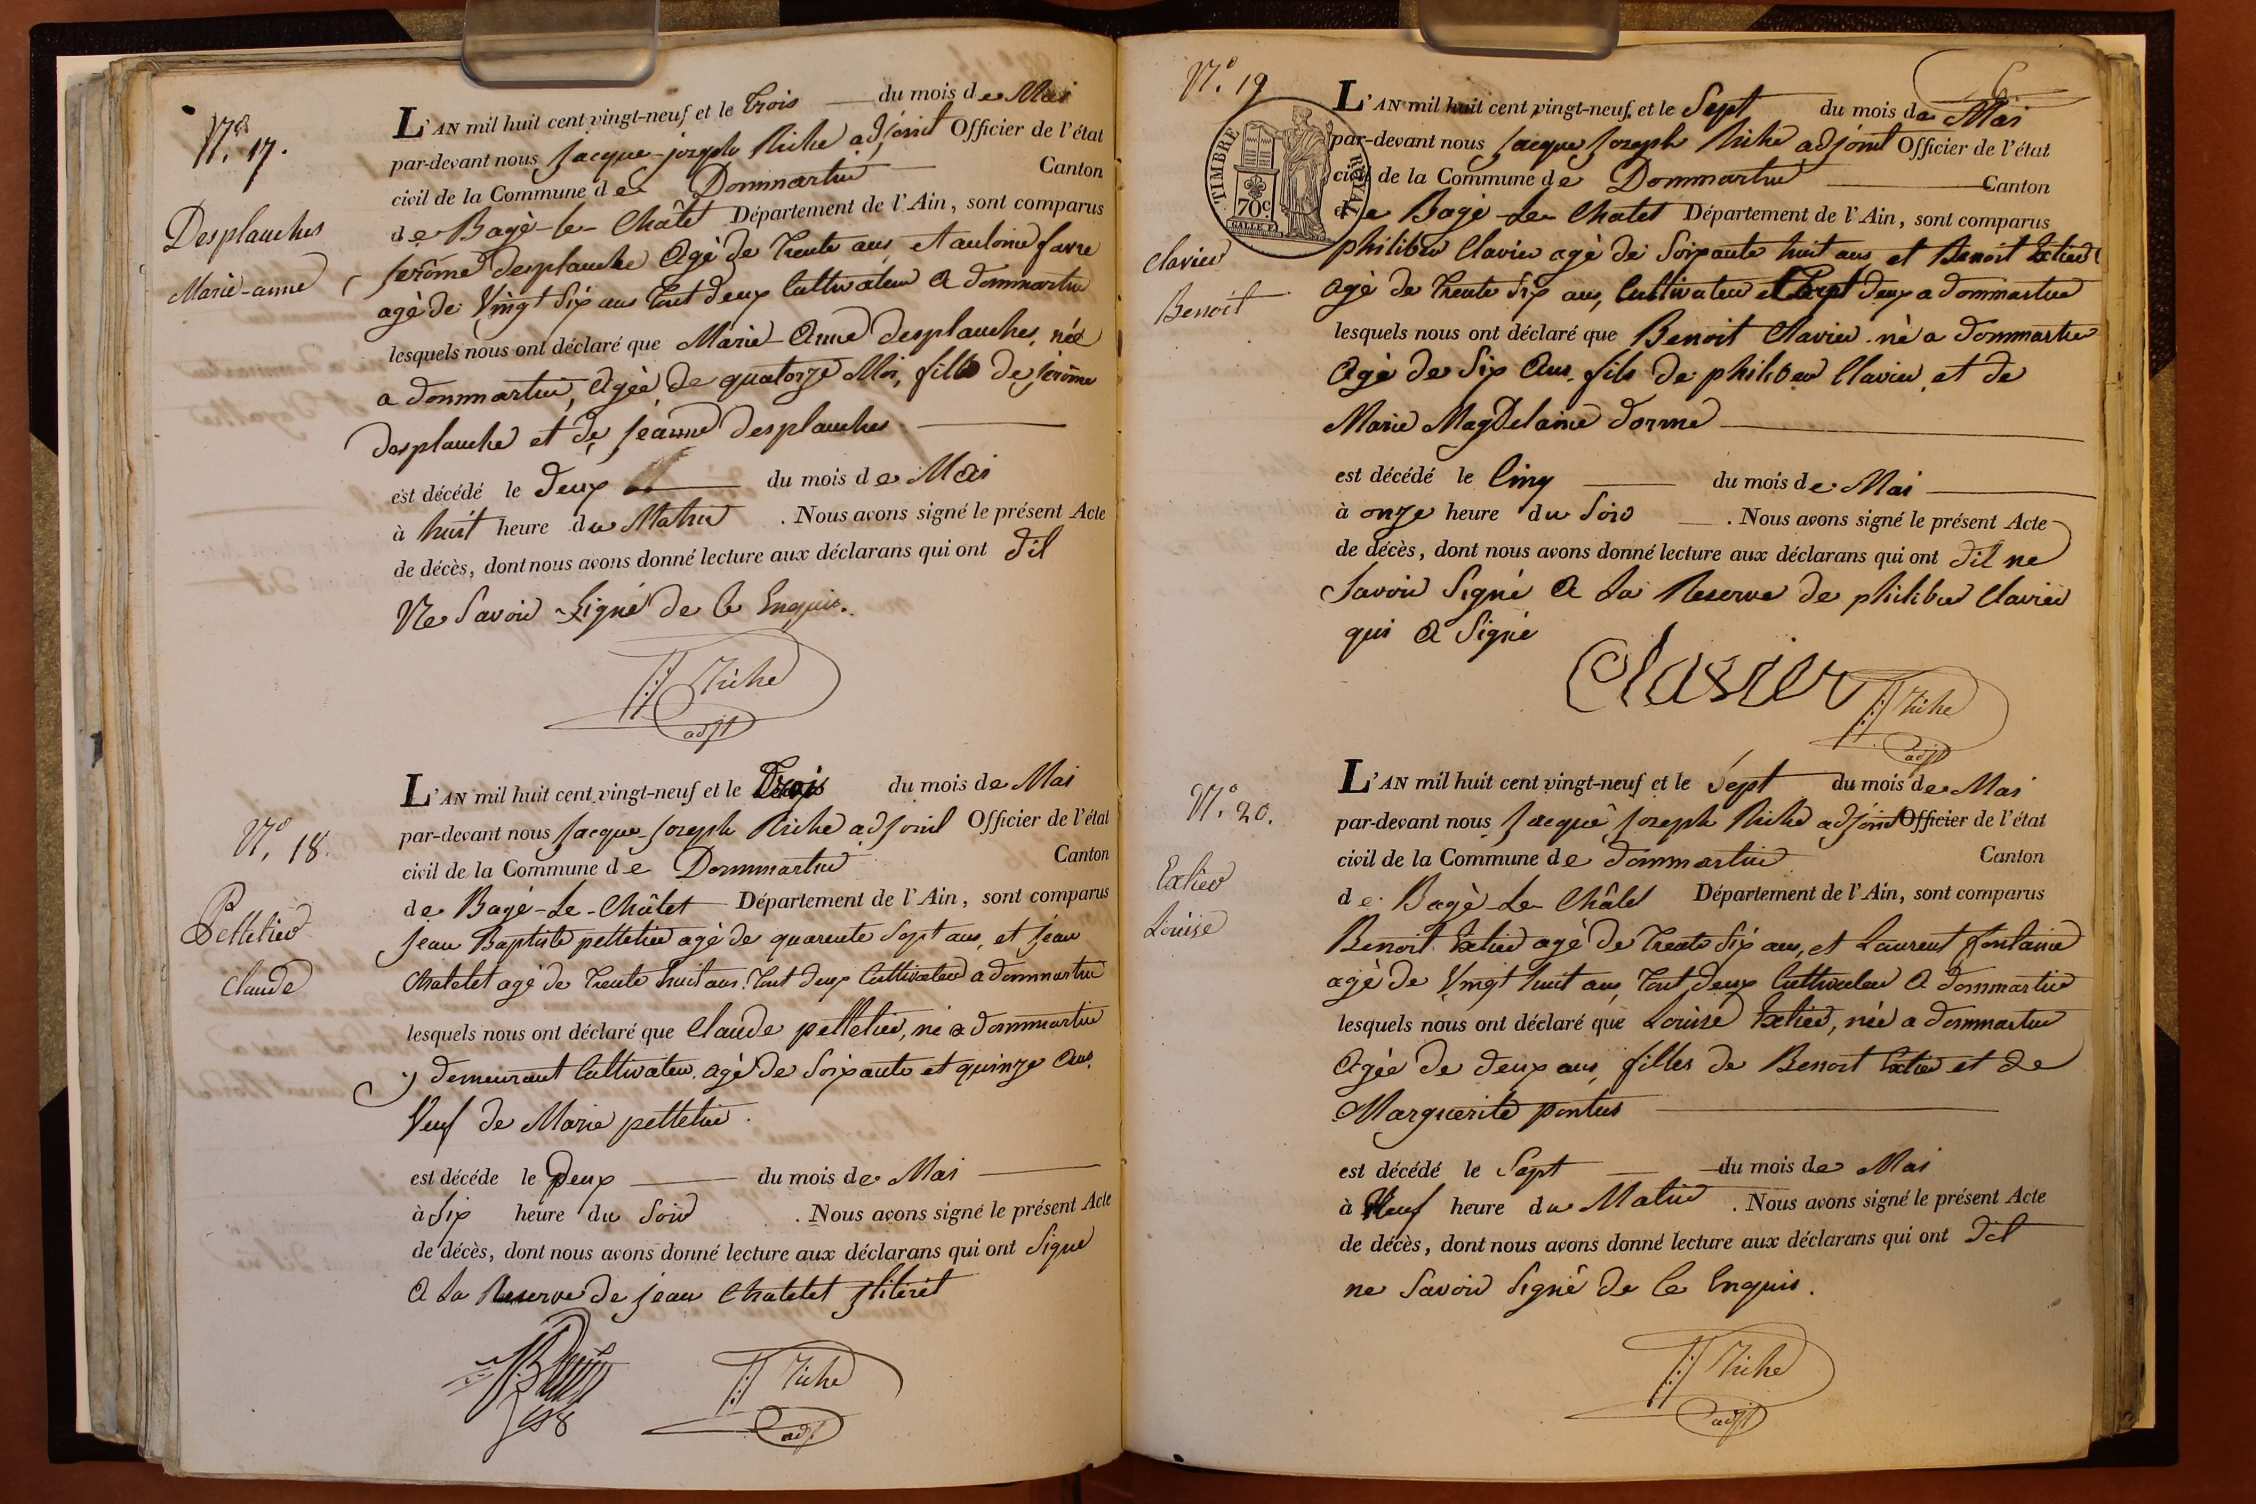 N.º 17.
Desplanches
Marie-anne
L'AN mil huit cent vingt-neuf et le trois du mois de Mai
par-devant nous Jacque-joseph Riche adjoint Officier de l'état
civil de la Commune de Dommartin Canton
de Bagé-le-Châtet Département de l'Ain, sont comparus
jerôme desplanche agé de trente ans, et antoine favre
agé de vingt Six ans tout deux Cultivateur a dommartin
lesquels nous ont déclaré que Marie-Anne desplanches, née
a dommartin, Agée de quatorze Moi, fille de jérôme
desplanche et de jeanne desplanches
est décédé le deux du mois de Mai
à huit heure du Matin . Nous avons signé le présent Acte
de décès, dont nous avons donné lecture aux déclarans qui ont dit
Ne Savoir Signé de le Enquis.
Riche
adjt
N.º 18.
Pelletier
claude
L'AN mil huit cent vingt-neuf et le Trois du mois de Mai
par-devant nous Jacque-joseph Riche adjoint Officier de l'état
civil de la Commune de Dommartin Canton
de Bagé-Le-Châtet Département de l'Ain, sont comparus
jean Baptiste pelletier agé de quarente Sept ans, et jean
Chatelet agé de trente huit ans. tout deux Cultivateur a dommartin
lesquels nous ont déclaré que Claude pelletier, né a dommartin
y demeurant Cultivateur. agé de Soixante et quinze Ans.
Veuf de Marie pelletier.
est décéde le Deux du mois de Mai
à Six heure du Soir . Nous avons signé le présent Acte
de décès, dont nous avons donné lecture aux déclarans qui ont Signé
a La Reserve de jean Chatelet
Riche
adjt
6
N.º 19
TIMBRE ROYAL
70c
clavier
Benoit
L'AN mil huit cent vingt-neuf, et le Sept du mois de Mai
par-devant nous Jacque Joseph Riche adjoint Officier de l'état
civil de la Commune de Dommartin Canton
de Bagé-Le-Chatet Département de l'Ain, sont comparus
philiber Clavier agé de Soixante huit ans, et Benoit Extier
agé de trente Six ans, Cultivateur deux a dommartin
lesquels nous ont déclaré que Benoit Clavier né a dommartin
Agé de Six Ans, fils de philiber Clavier, et de
Marie Magdelaine dorme
est décédé le Cinq du mois de Mai
à onze heure du Soir . Nous avons signé le présent Acte
de décès, dont nous avons donné lecture aux déclarans qui ont dit ne
Savoir Signé a La Reserve de philiber Clavier
qui a Signé
Clavier
Riche
adjt
N.º 20.
Extier
Louise
L'AN mil huit cent vingt-neuf et le Sept du mois de Mai
par-devant nous Jacque Joseph Riche adjoint Officier de l'état
civil de la Commune de dommartin Canton
de Bagé-Le-Châtet Département de l'Ain, sont comparus
Benoit Extier agé de trente Six ans, et Laurent fontaine
agé de Vingt huit ans, tout deux Cultivateur a dommartin
lesquels nous ont déclaré que Louise Extier, née a dommartin
Agée de deux ans, filles de Benoit Extier et de
Marguerite pontus
est décédé le Sept du mois de Mai
à Neuf heure du Matin . Nous avons signé le présent Acte
de décès, dont nous avons donné lecture aux déclarans qui ont dit
ne Savoir Signé de Ce Enquis.
Riche
adjt